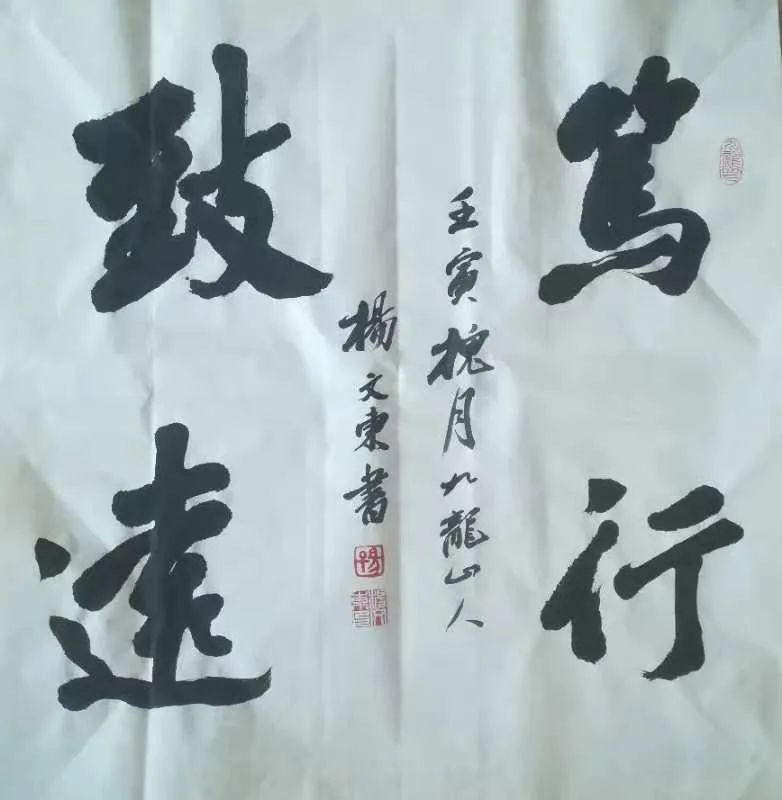 篤行
致遠
壬寅槐月九龍山人
楊文東書
楊